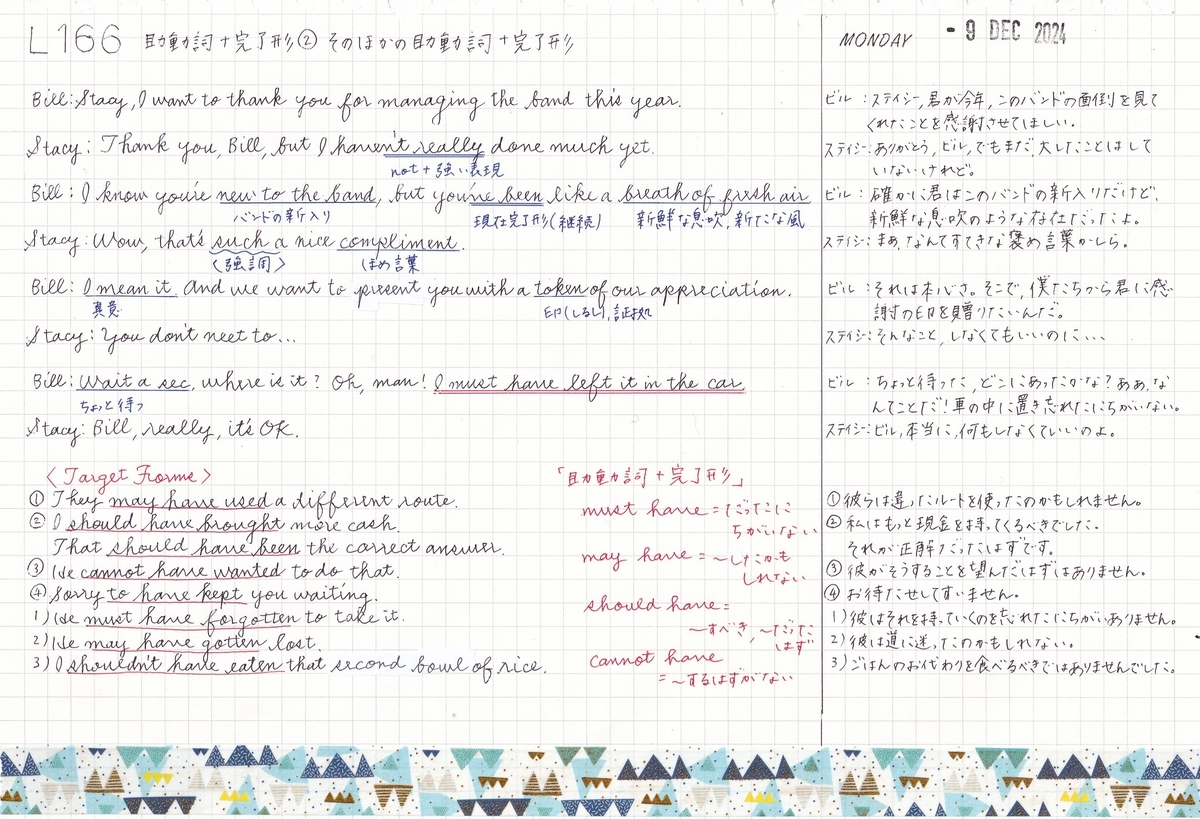 L166 助動詞+完了形② そのほかの助動詞+完了形
MONDAY - 9 DEC 2024
Bill: Stacy, I want to thank you for managing the band this year.
Stacy: Thank you, Bill, but I haven't really done much yet.
not+強い表現
Bill: I know you're new to the band, but you've been like a breath of fresh air
バンドの新入り 現在完了形(継続) 新鮮な息吹,新たな風
Stacy: Wow, that's such a nice compliment.
〈強調〉 ほめ言葉
Bill: I mean it. And we want to present you with a token of our appreciation.
真意 印(しるし),証拠
Stacy: You don't neet to...
Bill: Wait a sec, where is it? Oh, man! I must have left it in the car
ちょっと待つ
Stacy: Bill, really, it's OK.
ビル:ステイシー,君が今年,このバンドの面倒を見て
くれたことを感謝させてほしい。
ステイシー:ありがとう,ビル,でもまだ,大したことはして
いないけれど。
ビル:確かに君はこのバンドの新入りだけど,
新鮮な息吹のような存在だったよ。
ステイシー:まあ,なんてすてきな褒め言葉かしら。
ビル:それは本心さ。そこで,僕たちから君に感
謝の印を贈りたいんだ。
ステイシー:そんなこと,しなくてもいいのに・・・
ビル:ちょっと待った,どこにあったかな?ああ,な
んてことだ!車の中に置き忘れたにちがいない。
ステイシー:ビル,本当に,何もしなくていいのよ。
〈Target Forms〉
① They may have used a different route.
② I should have brought more cash.
That should have been the correct answer.
③ He cannot have wanted to do that.
④ Sorry to have kept you waiting.
1) He must have forgotten to take it.
2) He may have gotten lost.
3) I shouldn't have eaten that second bowl of rice.
「助動詞+完了形」
must have=だったに
ちがいない
may have=~したかも
しれない
should have=
~すべき,~だった
はず
cannot have
=~するはずがない
①彼らは違ったルートを使ったのかもしれません。
②私はもっと現金を持ってくるべきでした。
それが正解だったはずです。
③彼がそうすることを望んだはずはありません。
④お待たせしてすいません。
1)彼はそれを持っていくのを忘れたにちがいありません。
2)彼は道に迷ったのかもしれない。
3)ごはんのお代わりを食べるべきではありませんでした。